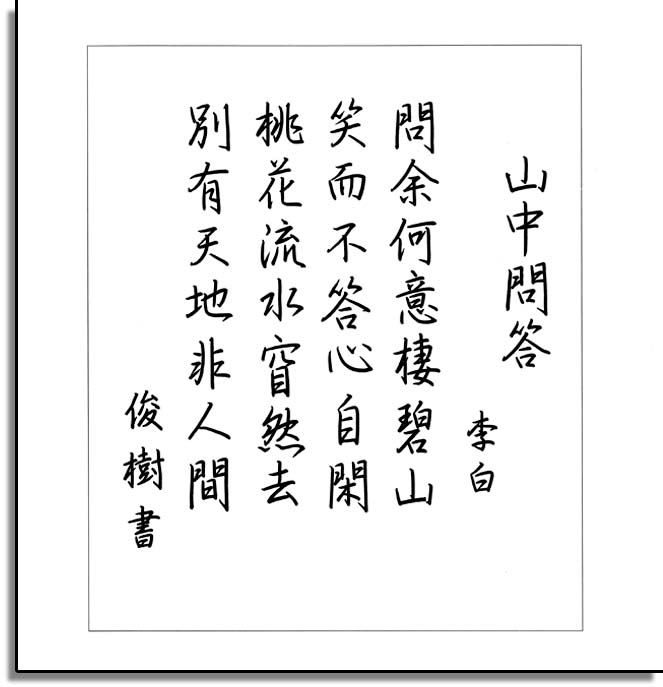 山中問答
李白
問余何意棲碧山
笑而不答心自閑
桃花流水窅然去
別有天地非人間
俊樹書